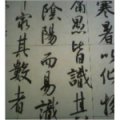 寒暑以化物
庸愚皆識其
陰陽而易識
其數者